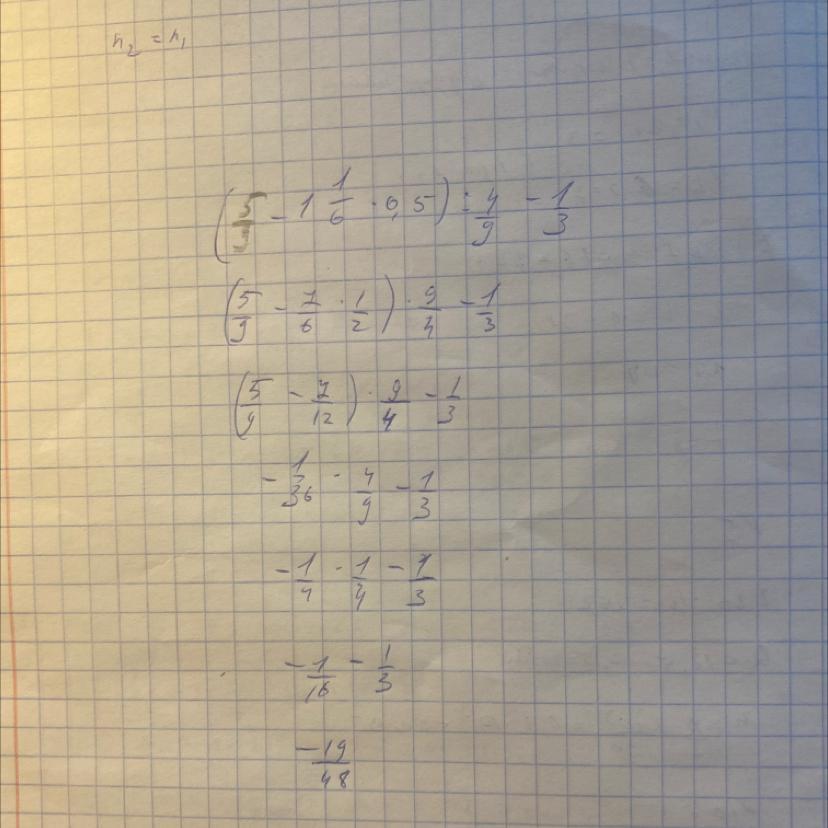 h₂ = h₁
(5/9 - 1 1/6 · 0,5) : 4/9 - 1/3
(5/9 - 7/6 · 1/2) · 9/4 - 1/3
(5/9 - 7/12) · 9/4 - 1/3
- 1/36 · 4/9 - 1/3
- 1/4 · 1/4 - 1/3
- 1/16 - 1/3
-19/48